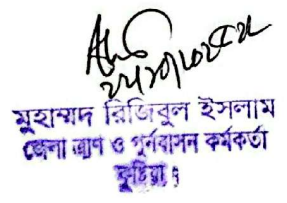 মুহাম্মদ রিজিবুল ইসলাম
জেলা ত্রাণ ও পুর্নবাসন কর্মকর্তা
কুষ্টিয়া।